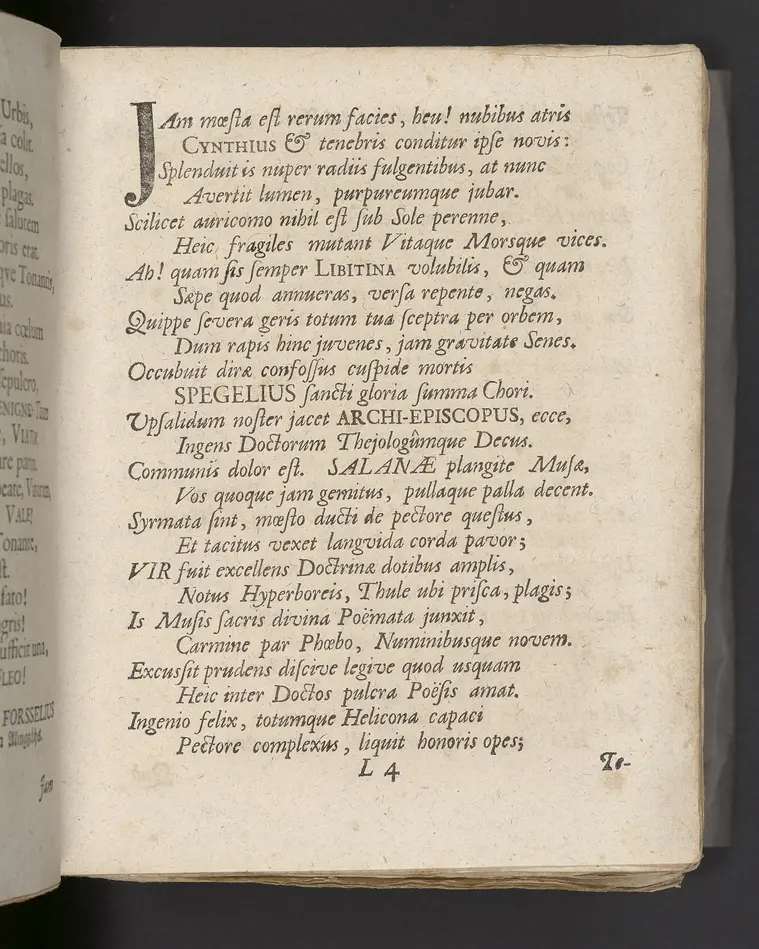 Urbis,
colit.
ellos,
plagas.
salutem
oris erat.
qve Tonantis,
us.
cœlum
choris.
sepulcro,
VIATOR
VALE!
Tonante,
st.
fato!
sufficit una,
FLEO!
FORSSELIUS
Jam
JAm mœsta est rerum facies, heu! nubibus atris
CYNTHIUS & tenebris conditur ipse novis:
Splenduit is nuper radiis fulgentibus, at nunc
Avertit lumen, purpureumque jubar.
Scilicet auricomo nihil est sub Sole perenne,
Heic fragiles mutant Vitaque Morsque vices.
Ah! quam sis semper LIBITINA volubilis, & quam
Sæpe quod annueras, versa repente, negas.
Quippe severa geris totum tua sceptra per orbem,
Dum rapis hinc juvenes, jam gravitate Senes.
Occubuit diræ confossus cuspide mortis
SPEGELIUS sancti gloria summa Chori.
Upsalidum noster jacet ARCHI-EPISCOPUS, ecce,
Ingens Doctorum Thejologûmque Decus.
Communis dolor est. SALANÆ plangite Musæ,
Vos quoque jam gemitus, pullaque palla decent.
Syrmata sint, mœsto ducti de pectore questus,
Et tacitus vexet langvida corda pavor;
VIR fuit excellens Doctrinæ dotibus amplis,
Notus Hyperboreis, Thule ubi prisca, plagis;
Is Musis sacris divina Poëmata junxit,
Carmine par Phœbo, Numinibusque novem.
Excussit prudens discive legive quod usquam
Heic inter Doctos pulcra Poësis amat.
Ingenio felix, totumque Helicona capaci
Pectore complexus, liquit honoris opes;
L 4
Te-